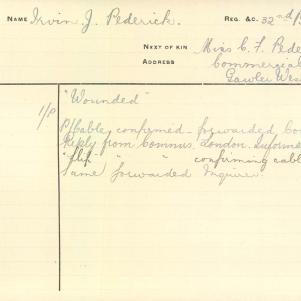 NAME Irvin J. Pederick. REG. &C. 32nd/
NEXT OF KIN Miss C. F. Pede
ADDRESS Commercial
Gawler Wes
"Wounded"
1/P P/Cable confirmed - forwarded, Co
Reply from Commrs. London. Informe
" " confirming cabl
Same forwarded Inquirer.